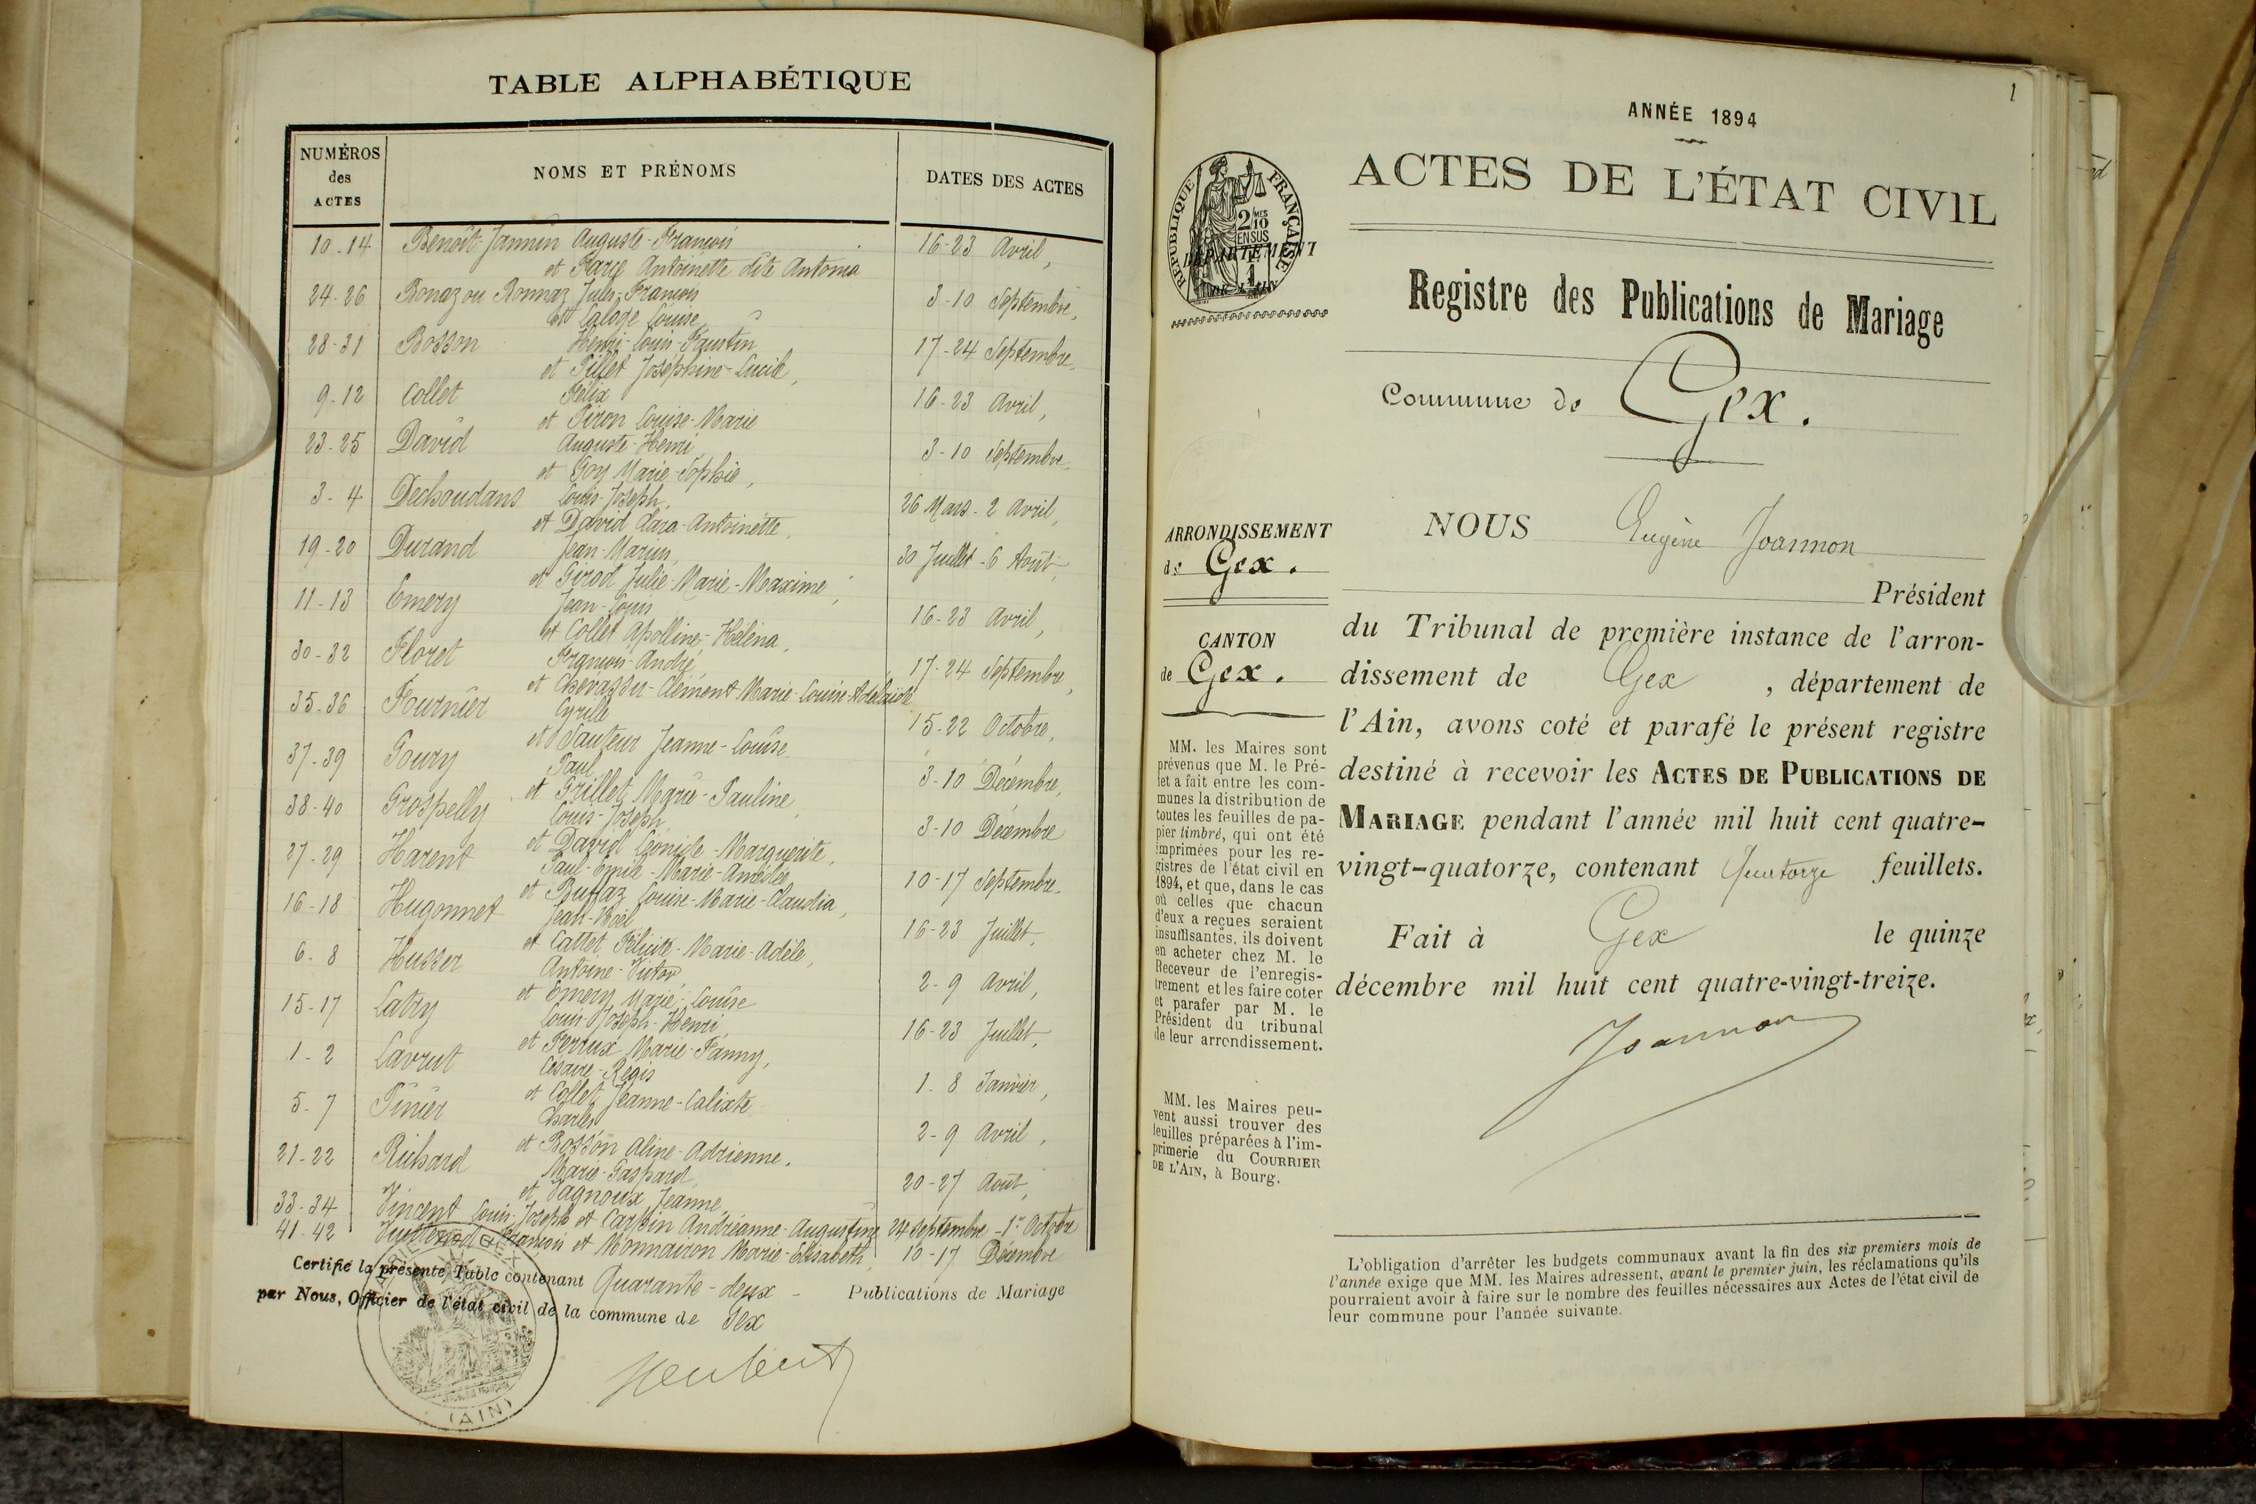 TABLE ALPHABÉTIQUE
NUMÉROS des ACTES
NOMS ET PRÉNOMS
DATES DES ACTES
10-14 Benoît-Jannin Auguste-François 16-23 Avril,
et Antoinette dite Antonia
24-26 Bonaz ou Bonnaz Jules-François 3-10 Septembre,
et Louise
28-31 Bosson Henri-Louis-Faustin 17-24 Septembre,
et Pillet Joséphine-Lucile,
9-12 Collet Félix 16-23 Avril,
et Piron Louise-Marie
23-25 David Auguste-Henri 3-10 Septembre,
et Goy Marie-Sophie,
3-4 Dechoudans Louis-Joseph, 26 Mars-2 Avril,
et David Clara-Antoinette,
19-20 Durand Jean-Marius, 30 Juillet-6 Août,
et Girod Julie-Marie-Maxime,
11-13 Emery Jean-Louis 16-23 Avril,
et Collet Apolline-Héléna,
30-32 Floret François-André 17-24 Septembre,
et Chevassu-Clément Marie-Louise-Adélaïde
35-36 Fournier Cyrille 15-22 Octobre,
et Sauteur Jeanne-Louise
37-39 Goury Paul 3-10 Décembre,
et Grillet Marie-Pauline,
38-40 Grospelly Louis-Joseph 3-10 Décembre
et David Léonide-Marguerite,
27-29 Harent Paul-Emile-Marie-Amédée 10-17 Septembre
et Buffaz Louise-Marie-Claudia,
16-18 Hugonnet Jean-Noël 16-23 Juillet,
et Cattet Félicité-Marie-Adèle,
6-8 Husser Antoine-Victor 2-9 Avril,
et Emery Marie-Louise
15-17 Latry Louis-Joseph-Henri 16-23 Juillet,
et Marie-Fanny,
1-2 Lavrut Césaire-Régis 1-8 Janvier,
et Collet Jeanne-Calixte
5-7 Pinier Charles 2-9 Avril,
et Bosson Aline-Adrienne,
21-22 Richard Marie-Gaspard 20-27 Août,
et Vagnoux Jeanne,
33-34 Vincent Louis-Joseph et Carpin Andréanne-Augustine 24 Septembre-1er Octobre
41-42 François et Monnairon Marie-Elisabeth, 10-17 Décembre
Certifié la présente Table contenant Quarante-deux - Publications de Mariage
par Nous, Officier de l'état civil de la commune de Gex
(AIN)
1
ANNÉE 1894
ACTES DE L'ÉTAT CIVIL
RÉPUBLIQUE FRANÇAISE
2 MES 10 EN SUS
DÉPARTEMENT
DE L'AIN
Registre des Publications de Mariage
Commune de Gex.
ARRONDISSEMENT
de Gex.
CANTON
de Gex.
MM. les Maires sont
prévenus que M. le Pré-
fet a fait entre les com-
munes la distribution de
toutes les feuilles de pa-
pier timbré, qui ont été
imprimées pour les re-
gistres de l'état civil en
1894, et que, dans le cas
où celles que chacun
d'eux a reçues seraient
insuffisantes, ils doivent
en acheter chez M. le
Receveur de l'enregis-
trement et les faire coter
et parafer par M. le
Président du tribunal
de leur arrondissement.
MM. les Maires peu-
vent aussi trouver des
feuilles préparées à l'im-
primerie du COURRIER
DE L'AIN, à Bourg.
NOUS Eugène Joannon
Président
du Tribunal de première instance de l'arron-
dissement de Gex, département de
l'Ain, avons coté et parafé le présent registre
destiné à recevoir les ACTES DE PUBLICATIONS DE
MARIAGE pendant l'année mil huit cent quatre-
vingt-quatorze, contenant Quatorze feuillets.
Fait à Gex le quinze
décembre mil huit cent quatre-vingt-treize.
Joannon
L'obligation d'arrêter les budgets communaux avant la fin des six premiers mois de
l'année exige que MM. les Maires adressent, avant le premier juin, les réclamations qu'ils
pourraient avoir à faire sur le nombre des feuilles nécessaires aux Actes de l'état civil de
leur commune pour l'année suivante.